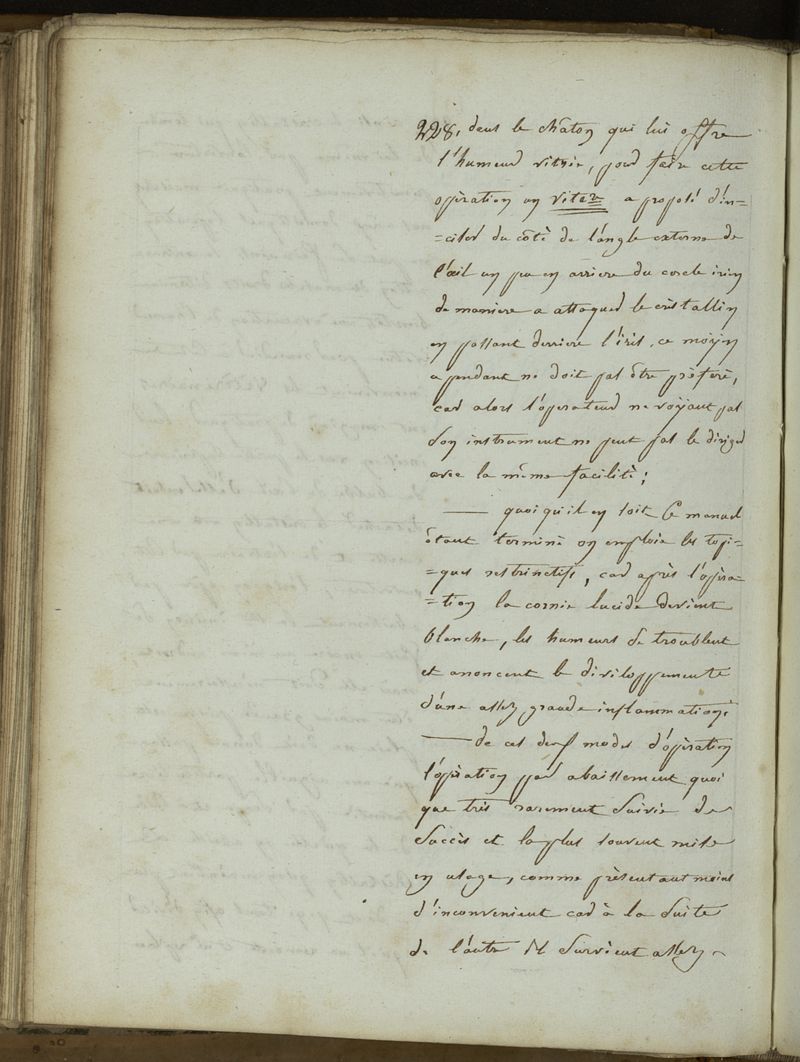 228, dens le châton qui lui offre
l'humeur vitrée, pour faire cette
opération on vitex a proposé d'in=
=ciser du côté de l'angle externe de
l'œil un peu en arriere du cercle irien
de maniere a attaquer le cristallin
en passant derriere l'iris, ce moyen
cependant ne doit pas être préféré,
car alors l'operateur ne voyant pas
son instrument ne peut pas le diriger
avec la même facilité;
— quoi qu'il en soit le manuel
étant terminé on emploie les topi=
=ques restrinctifs, car après l'opéra=
=tion la cornée lucide devient
blanche, les humeurs se troublent
et anoncent le développemente
d'une assez grande inflammation;
— de ces deux modes d'opération
l'opération par abaissement quoi
que très rarement suivie de
succès et la plus souvent mise
en usage, comme présentant moins
d'inconvenient car à la suite
de l'autre il survient assez